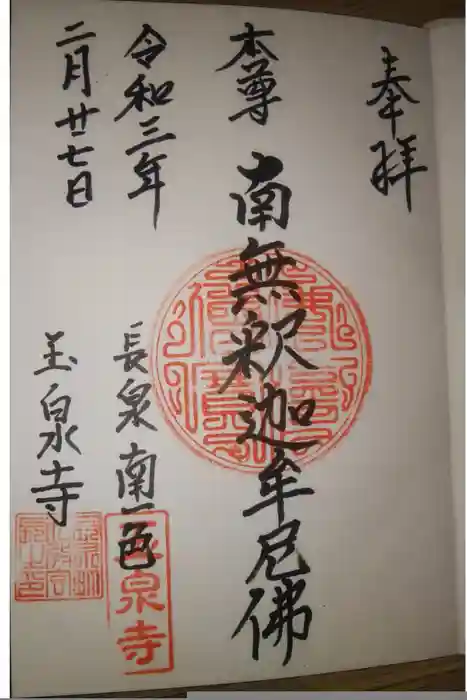 奉拝
本尊 南無釈迦牟尼佛
令和三年
二月廿七日
長泉 南一色
玉泉寺
長泉寺